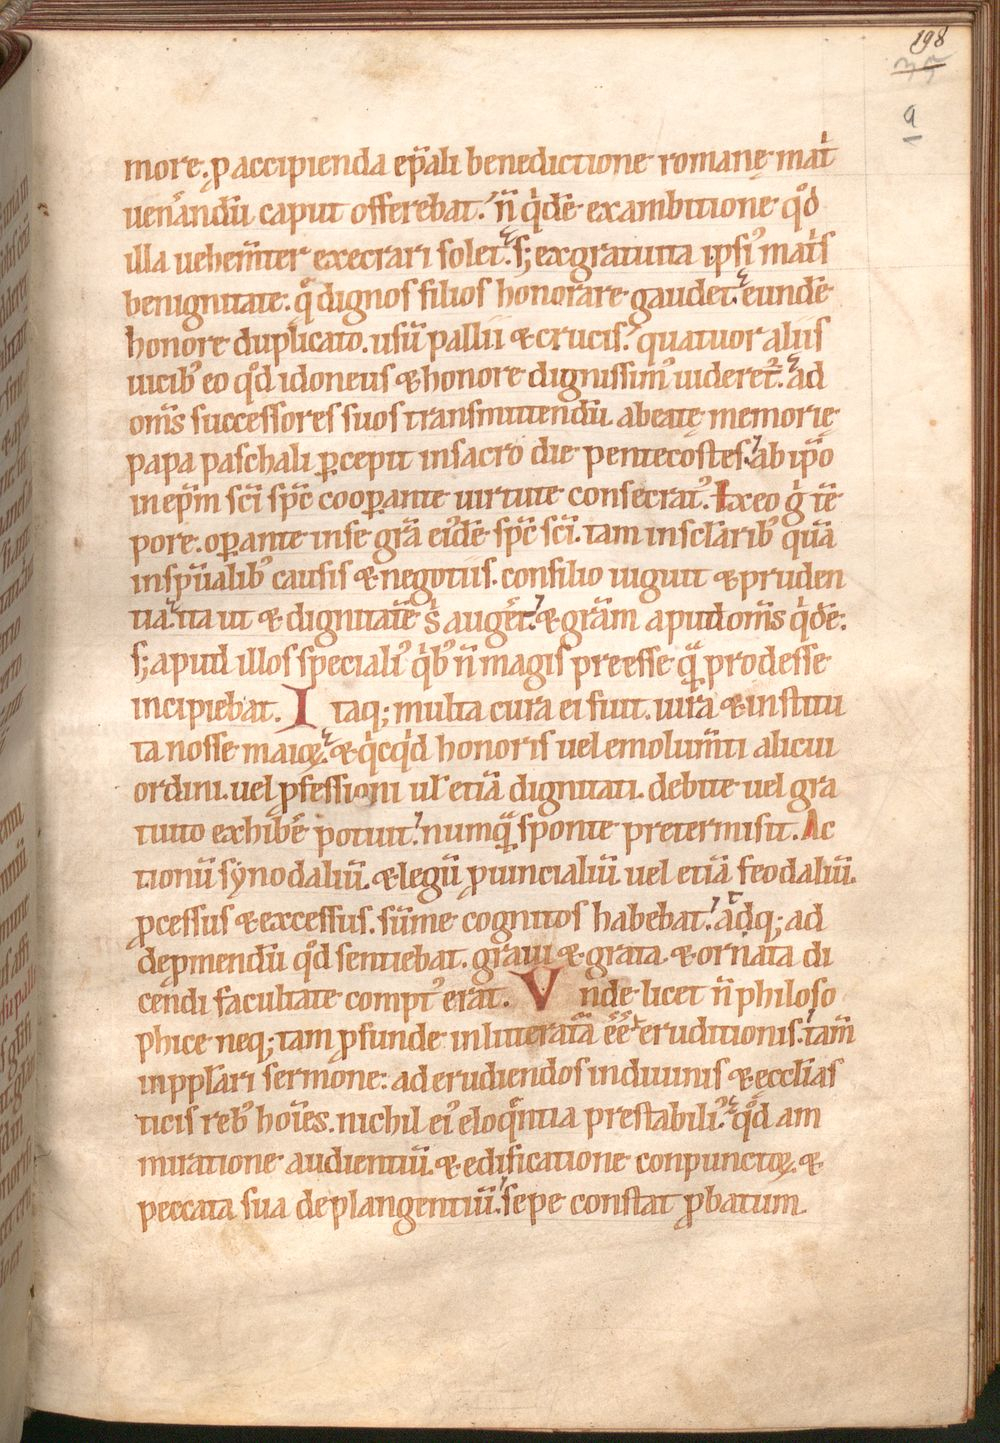 198
35
a
more. ꝑ accipienda ep̄ali benedictione romanę mat̍
uen̾andū caput offerebat. n̄ q̍dē ex ambitione qͦd
illa uehem̄ter execrari solet. s; ex gratuita ipsi᾽ mat̍s
benignitate qͦ dignos filios honorare gaudet. eundē
honore duplicato. usū pallii & crucis. quatuor aliis
uicib᾽ eo qͦd idoneus & honore dignissim᾽ uideret᷑. ad
om̄s successores suos transmittendū. a beatę memorię
papa paschali ꝑcepit in sacro die pentecostes. ab ip̄o
in ep̄m sc̄i sp̄c cooꝑante uirtute consecrat᾽. Ex eo g̍ tē
pore. oꝑante in se gr̄a ei᾽dē sp̄c sc̄i. tam in scl̄arib᾽ quā
in sp̄ualib᾽ causis & negotiis. consilio uiguit & pruden
tia. ita ut & dignitatē s̍ auger̄t. & gr̄am apud om̄s q̍dē.
s; apud illos speciali᾽ q̍b᾽ n̄ magis preesse qᷓ prodesse
incipiebat. Itaq; multa cura ei fuit. iura & institu
ta nosse maioꝝ. & q̍cq̍d honoris uel emolum̄ti alicui
ordini. uel ꝓfessioni ul᾽ etiā dignitati. debite uel gra
tuito exhib̄e potuit. numqᷓ sponte pretermisit. Ac
tionū synodaliū. & legū ꝓuincialiū uel etiā feodaliū.
ꝓcessus & excessus. sūme cognitos habebat. adq; ad
deꝓmendū qͦd sentiebat. graui & grata & ornata di
cendi facultate compt᾽ erat. Vnde licet n̄ philoso
phice neq; tam ꝓfunde in litteratā ēē eruditionis. tam̄
in pplari sermone. ad erudiendos in diuinis & ęccl̄ias
ticis reb᾽ hoīes. nichil ei᾽ eloqͦntia prestabili᾽. qͦd am
miratione audientiū. & edificatione conpunctoꝝ. &
peccata sua deplangentiū. sepe constat ꝓbatum.